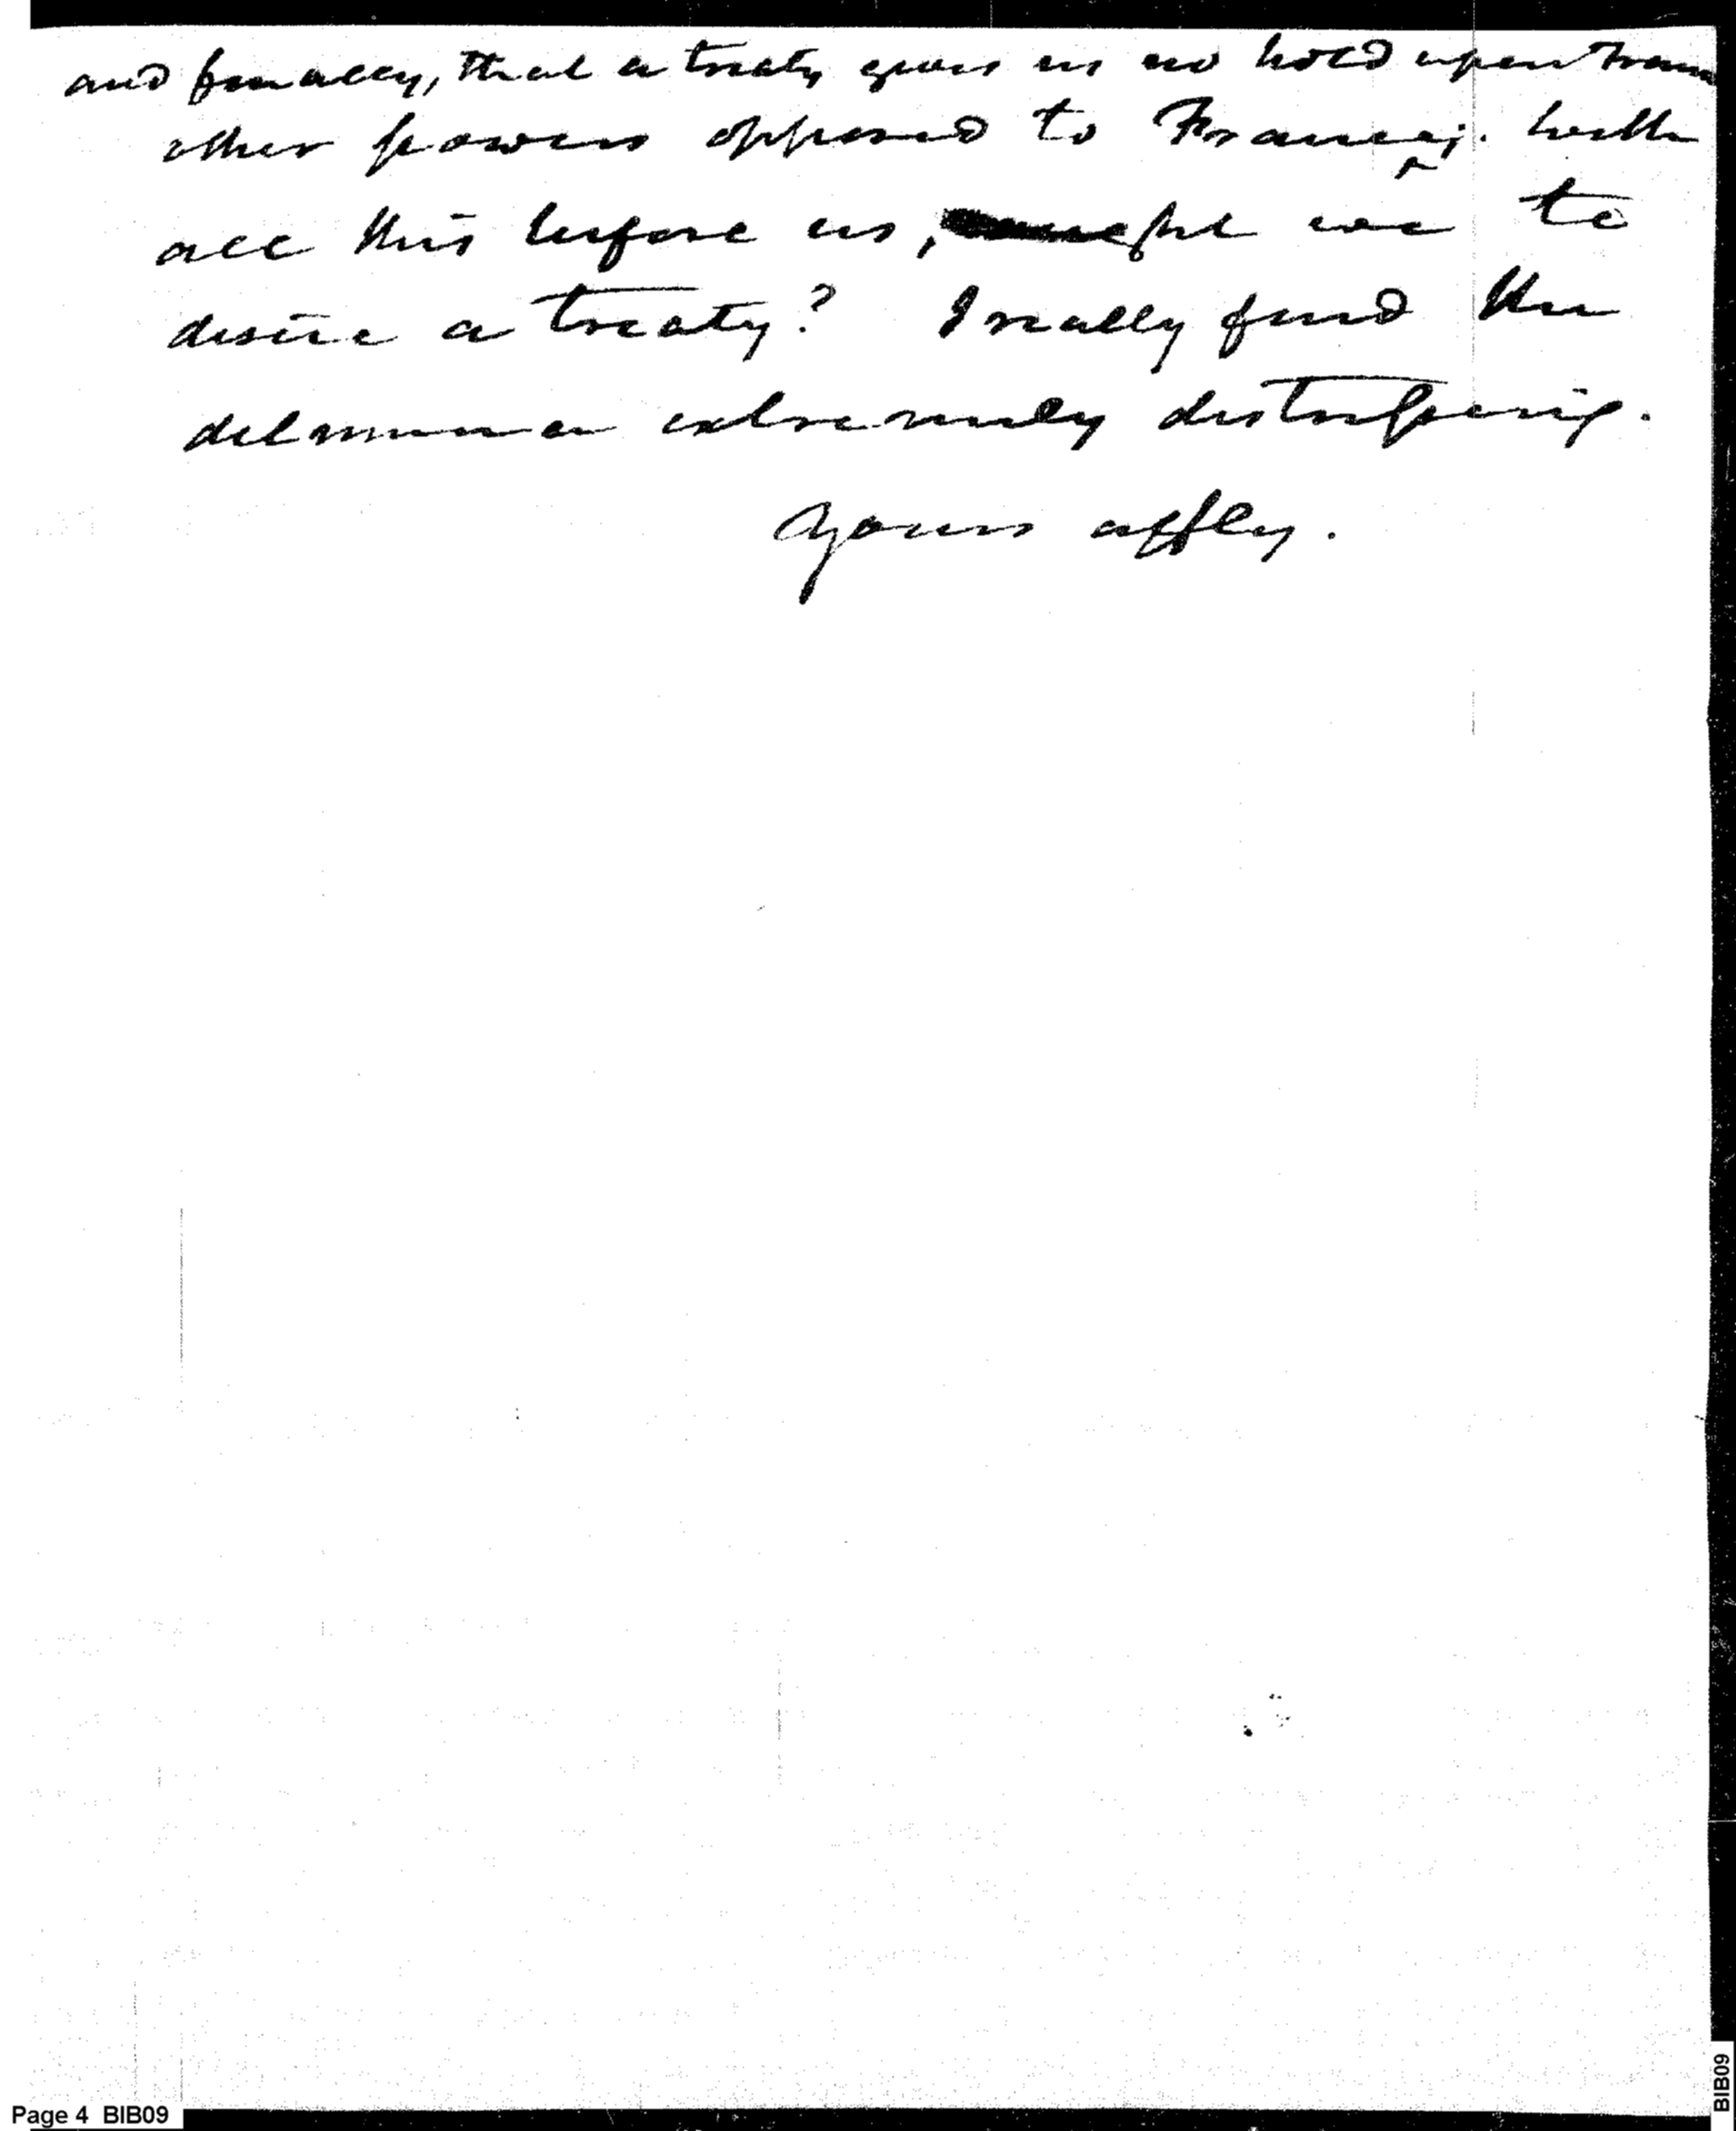 and finally, that a treaty gives us no hold upon
other powers opposed to France; . With
all this before us, ought we to
desire a treaty? I really find the
dilemma extremely distressing.
Yours affly.
Page 4 BIB09
BIB09